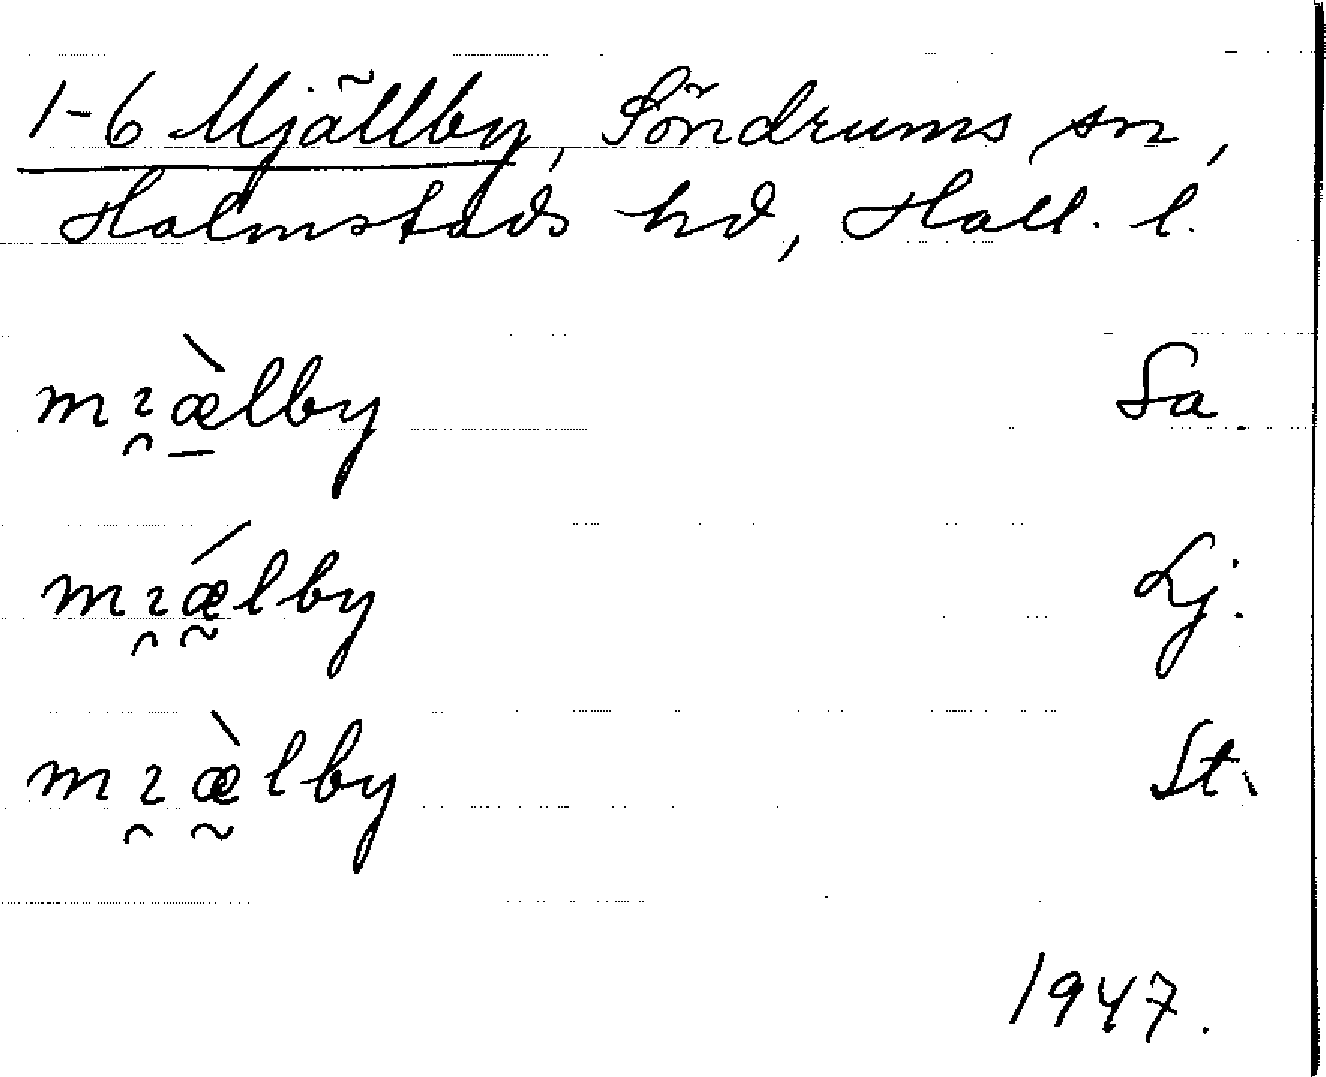 1-6 Mjällby, Söndrums sn,
Halmstads hd, Hall. l.
mı̯æ̠̀lby Sa.
mı̯ǽ̰lby Lj.
mı̯æ̰̀lby St.
1947.